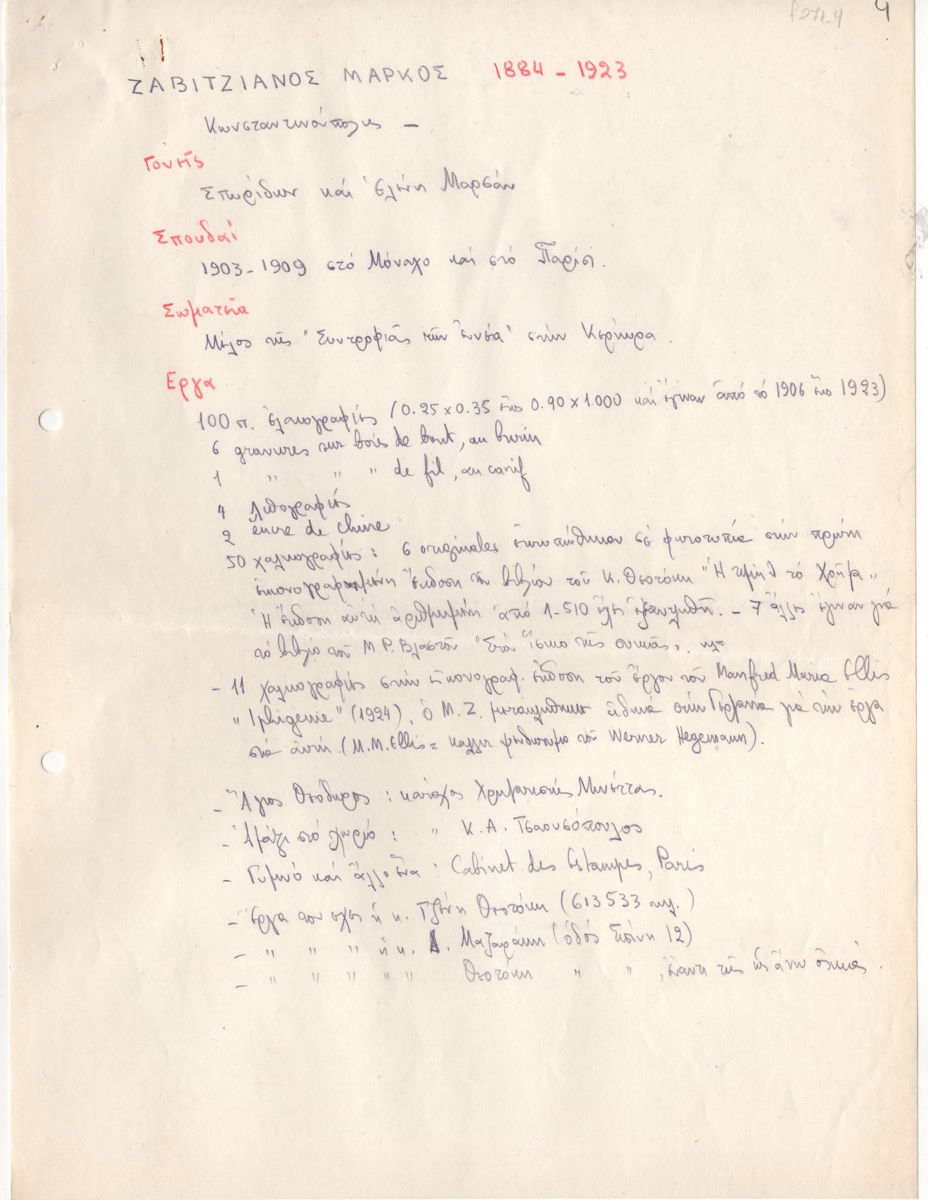 4
ΖΑΒΙΤΖΙΑΝΟΣ ΜΑΡΚΟΣ 1884 - 1923
Κωνσταντινούπολις -
Γονεῖς
Σπυρίδων καί Ἑλένη Μαρσάν
Σπουδαί
1903-1909 στό Μόναχο καί στό Παρίσι.
Σωματεῖα
Μέλος τῆς "Συντροφιᾶς τῶν ἐννέα" στήν Κέρκυρα.
Εργα
100 π. ἐλαιογραφίες (0.25 x 0.35 ἕως 0.90 x 1.000 καί ἔγιναν ἀπό τό 1906 ἕως 1923)
6 gravures sur bois de bout, au burin
1 " " " de fil, au canif
4 λιθογραφίες
2 encre de chine
50 χαλκογραφίες: 6 originales ἐτυπώθηκαν σέ φωτοτυπία στήν πρώτη
εἰκονογραφημένη ἔκδοση τοῦ βιβλίου τοῦ Κ. Θεοτόκη "Ἡ τιμή & τό Χρῆμα"
Ἡ ἔκδοση αὐτή ἀριθμημένη ἀπό 1-510 ἔχει ἐξαντληθῆ. - 7 ἄλλες ἔγιναν γιά
τό βιβλίο τοῦ Μ Ρ. Βλαστοῦ "Στόν ἴσκιο τῆς συκιᾶς".
- 11 χαλκογραφίες στήν εἰκονογραφ. ἔκδοση τοῦ ἔργου τοῦ Manfred Maria Ellis
"Iphigenie" (1924), ὁ Μ. Ζ. μετακλήθηκε εἰδικά στήν Γερμανία γιά τήν ἐργασία
αὐτή (M.M. Ellis = ψευδώνυμο τοῦ Werner Hegemann).
- Ἅγιος Θεόδωρος: κάτοχος Χρηματιστής Μινέττας.
- Ἁμάξι στό χωριό: " Κ. Α. Τσαουσόπουλος
- Γυμνό καί ἄλλο ἕνα: Cabinet des Estampes, Paris
- Ἔργα του ἔχει ἡ κ. Τζένη Θεοτόκη (613533 τηλ.)
- " " " ἡ κ. Δ. Μαζαράκη (ὁδός Σισίνη 12)
- " " " " " Θεοτόκη " " , ἔναντι τῆς ὡς ἄνω οἰκίας.